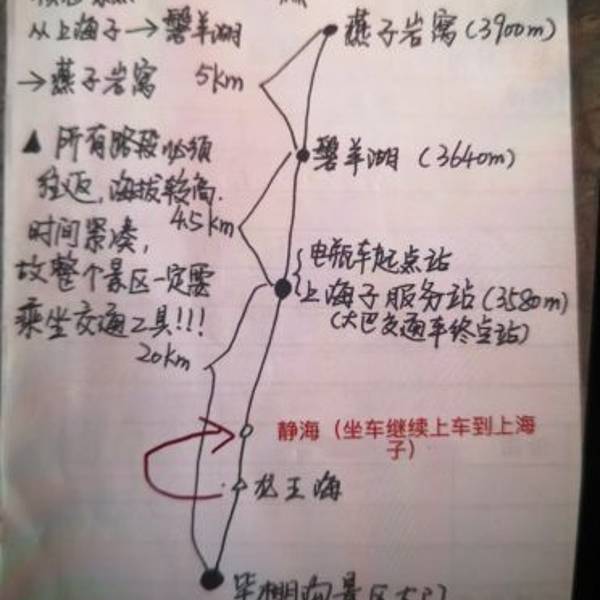 从上海子→磐羊湖
→燕子岩窝
▲ 所有路段必须
往返,海拔较高.
时间紧凑,
故整个景区一定要
乘坐交通工具!!!
燕子岩窝(3900m)
5km
磐羊湖 (3640m)
4.5km
电瓶车起点站
上海子服务站(3580m)
(大巴交通车终点站)
20km
静海(坐车继续上车到上海
子)
龙王海
毕棚沟景区大门